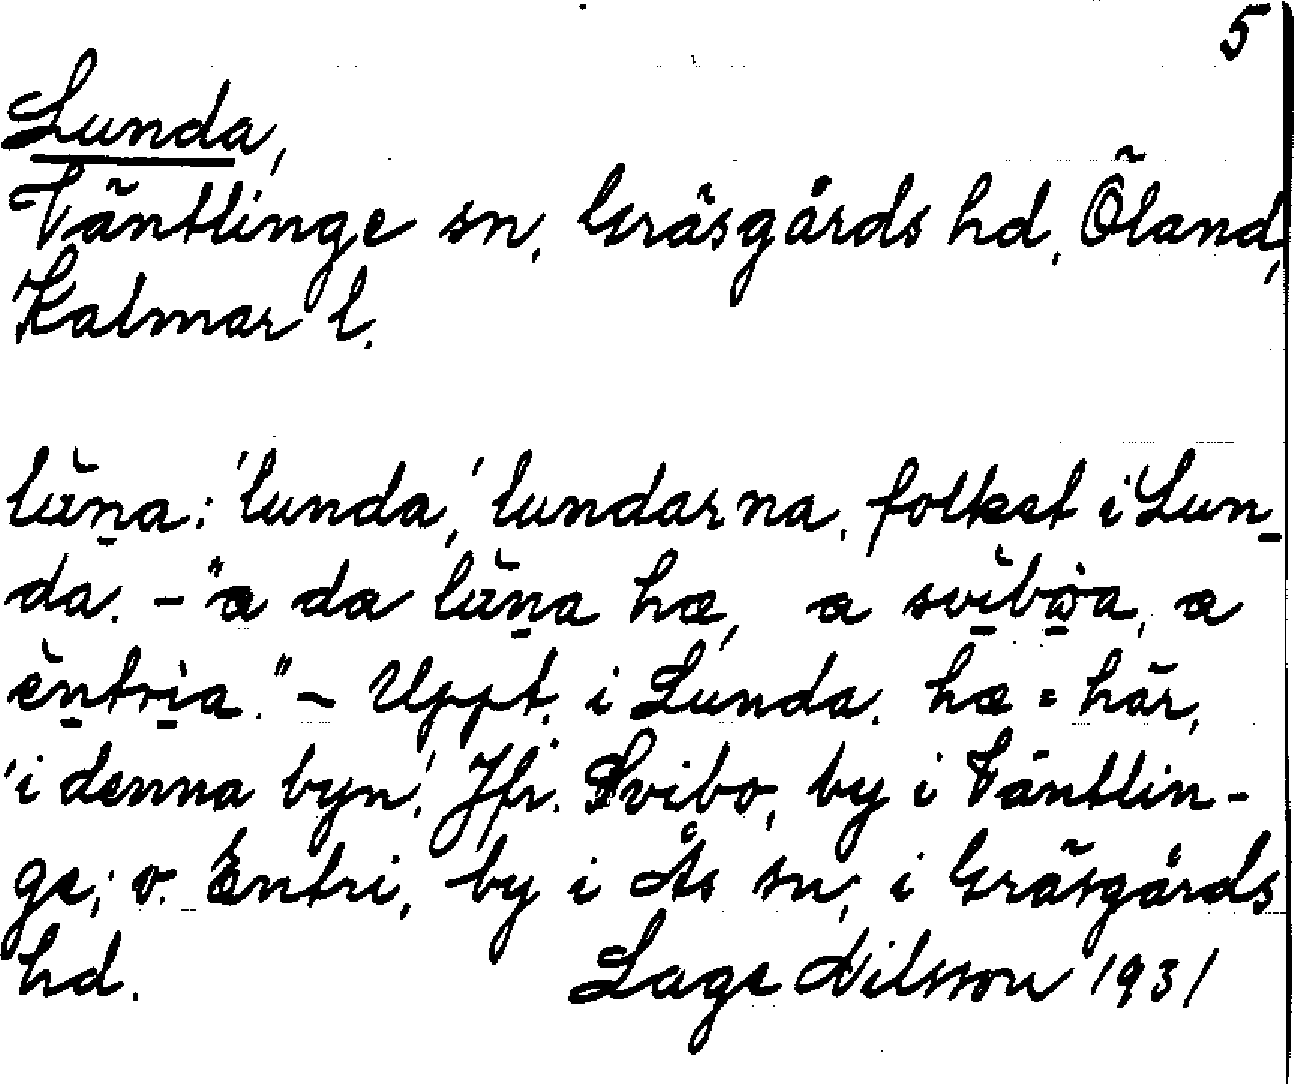 5
Lunda,
Väntlinge sn, Gräsgårds hd, Öland,
Kalmar l.
lùn̠a: 'lunda', lundarna, folket i Lun-
da. - "æ da lùn̠a hæ, æ svi̠bo̠a, æ
èn̠tri̠a." - Uppt. i Lunda. hæ = här,
'i denna byn'. Jfr. Svibo, by i Väntlin-
ge; o. Entri, by i Ås sn, i Gräsgårds
hd. Lage Nilsson 1931